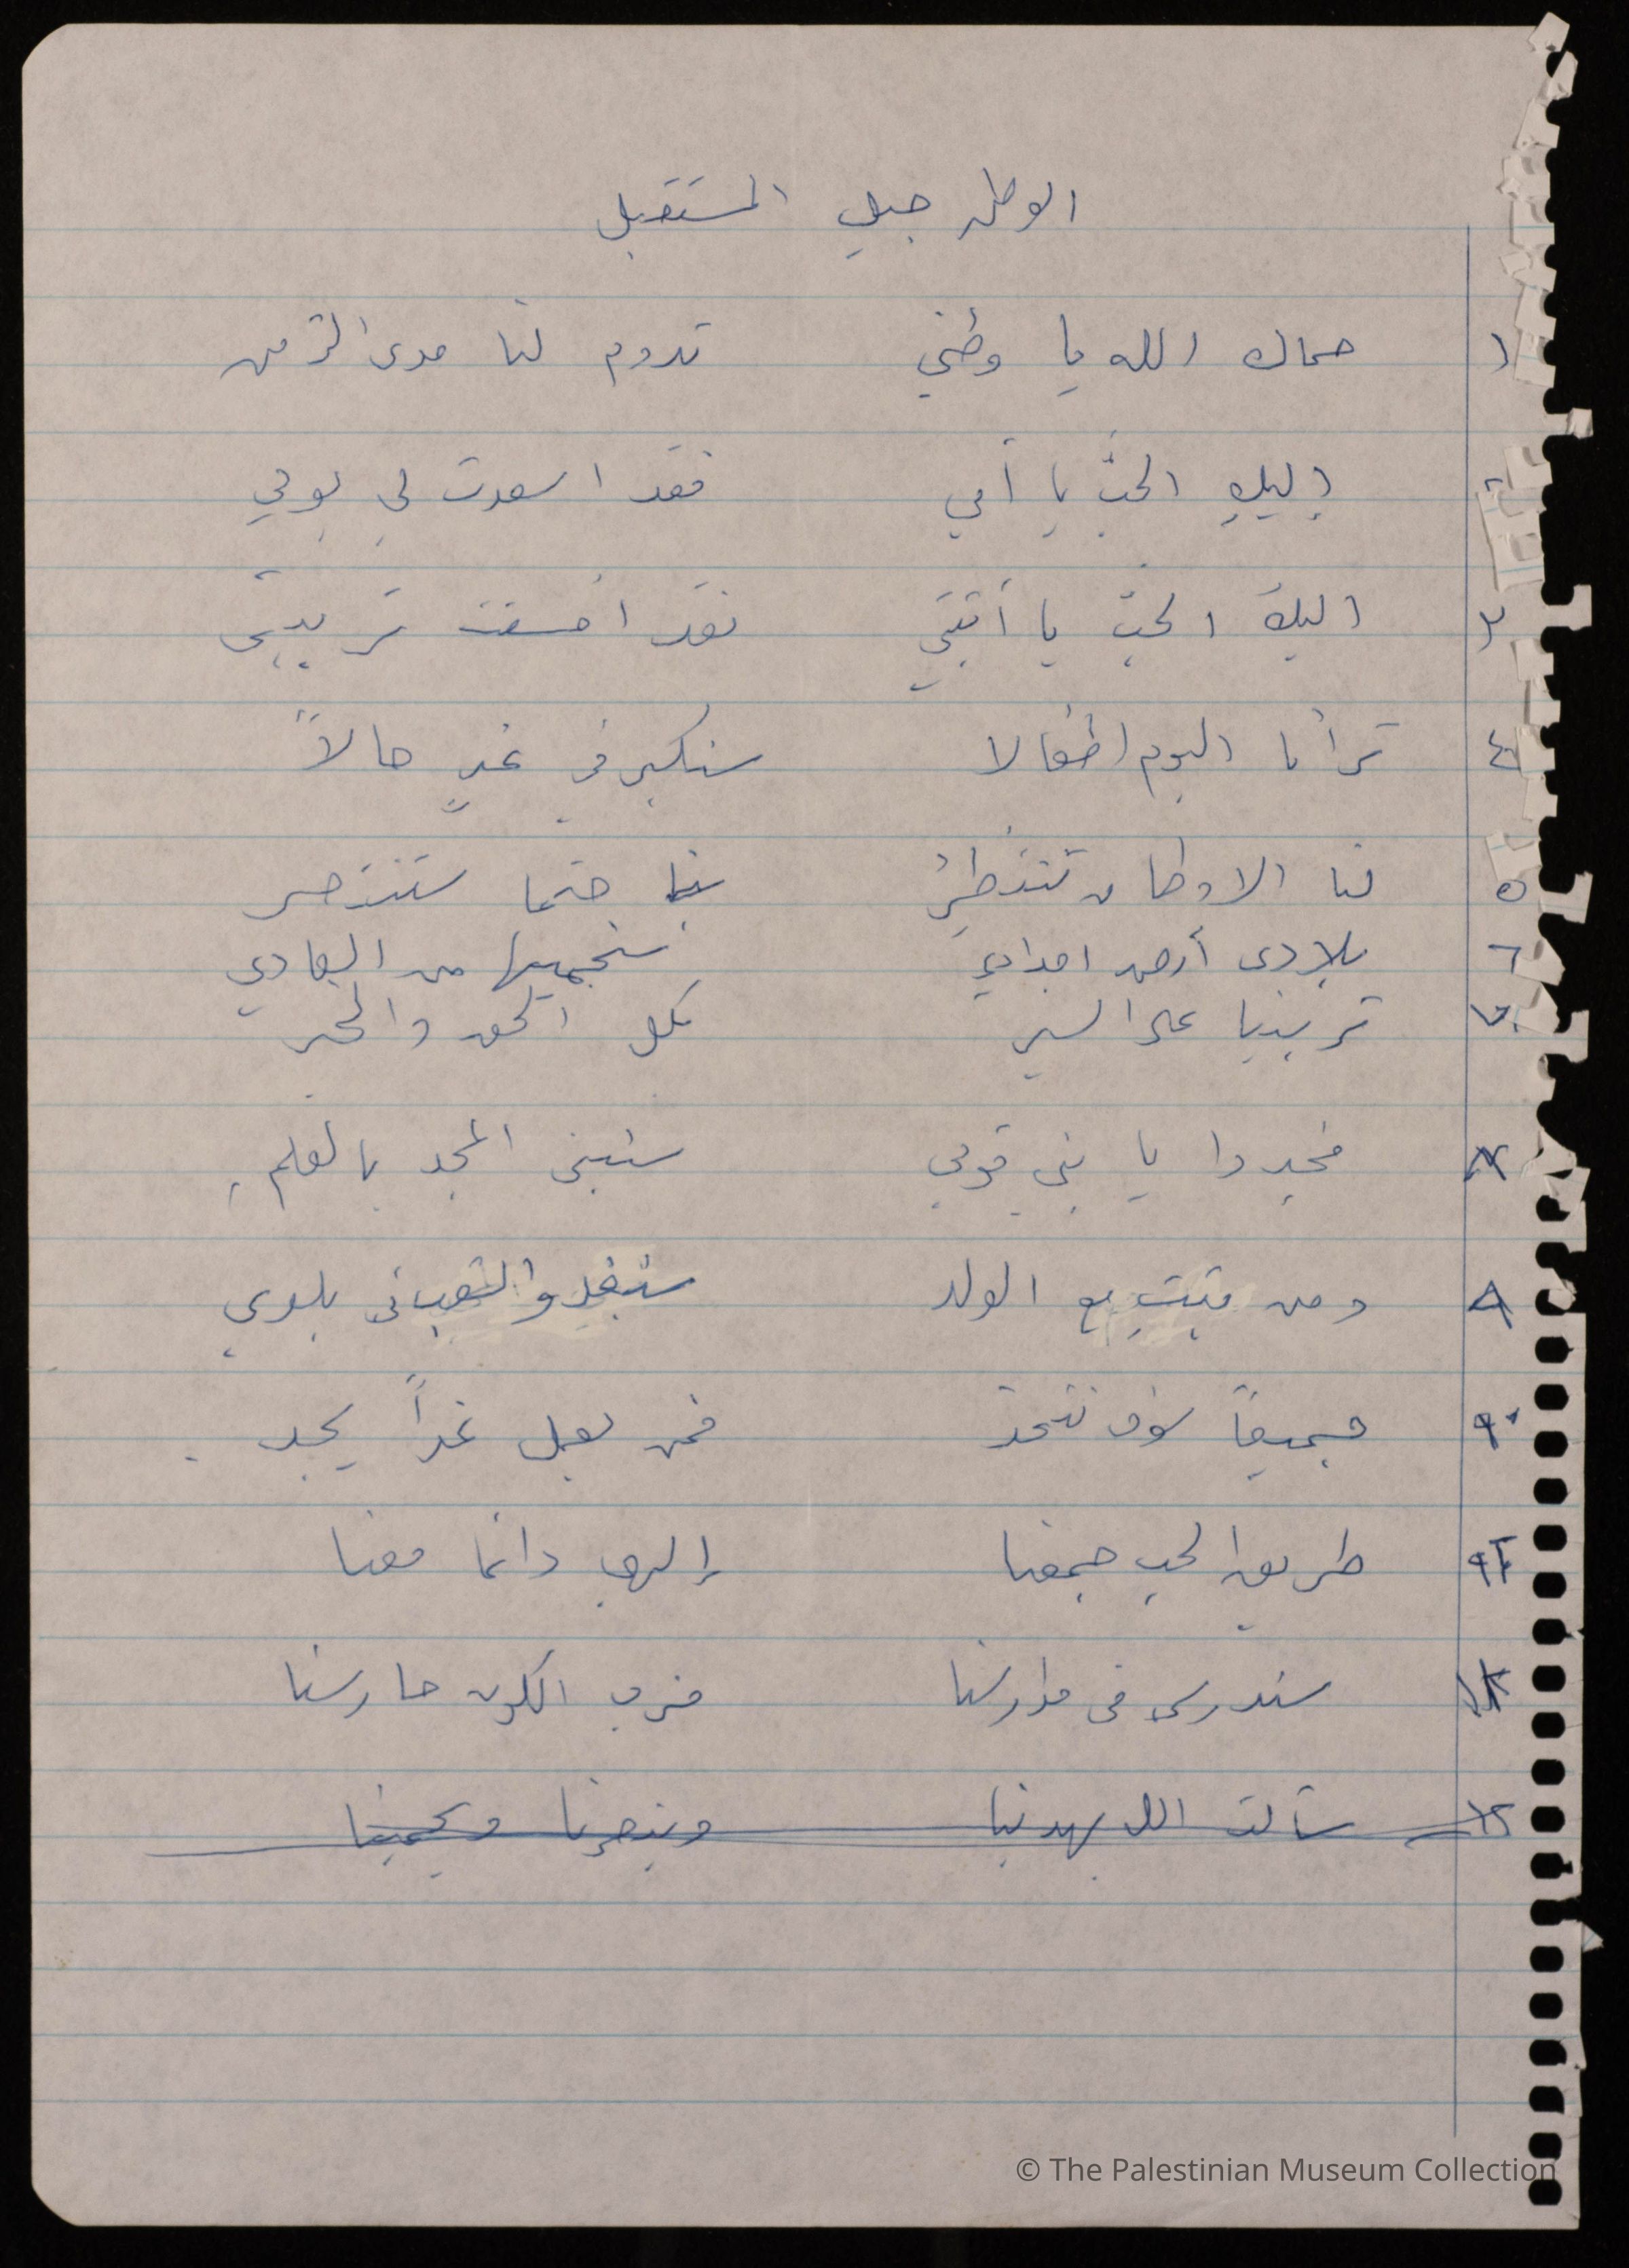 الوطن جيل المستقبل
١ حماك الله يا وطني تدوم لنا مدى الزمن
٢ إليكِ الحبّ يا أمي فقد اسعدت لي يومي
٣ اليكَ الحبّ يا أبتي فقد احسنت تربيتي
٤ ترانا اليوم اطفالا سنكبر في غدٍ حالاً
٥ لنا الاوطان تنتظرُ بنا حتما ستنتصر
٦ بلادي أرض اجدادي سنحميها من العادي
٧ تربينا على السير بكل الحق والخير
فجدوا يا بني قومي سنبني المجد بالعلم
ومن الولد بلدي
٩ جميعاً سوف نتحد فمن يعمل غداً يجد
طريق الحب جمعنا إله دائما معنا
سندرس في مدارسنا فرب الكون حارسنا
سألت الله يهدينا وينصرنا ويحمينا
© The Palestinian Museum Collection